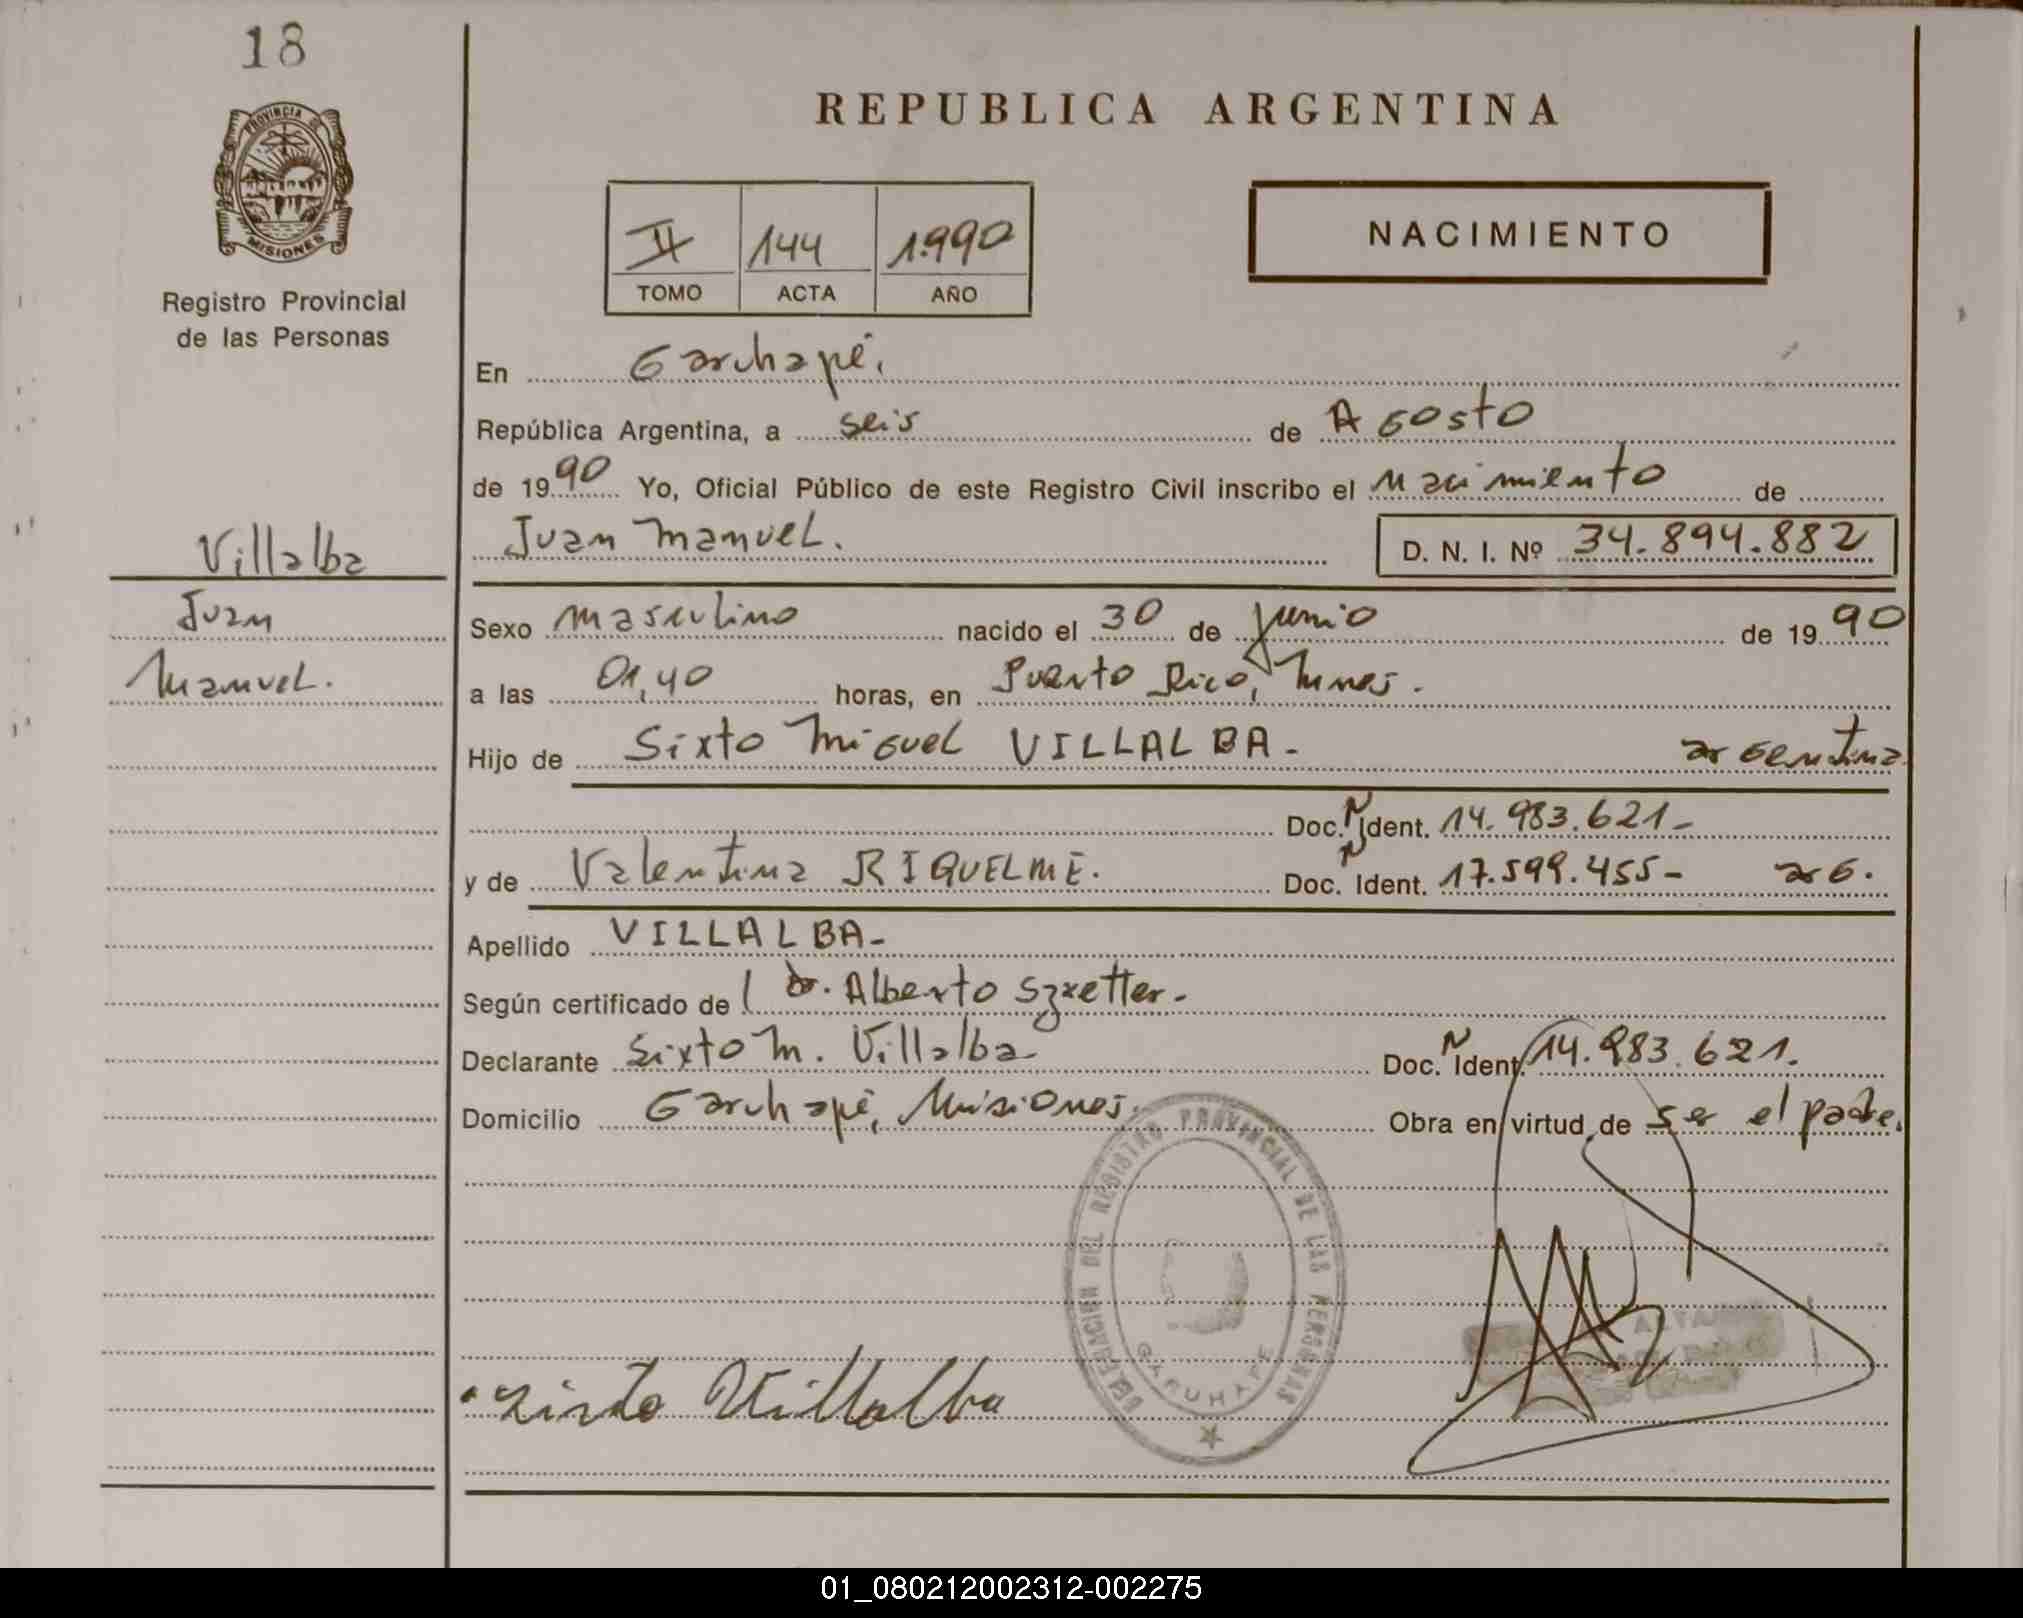 18
REPUBLICA ARGENTINA
PROVINCIA DE
MISIONES
Registro Provincial
de las Personas
II 144 1.990
TOMO ACTA AÑO
NACIMIENTO
En Garuhapé.
República Argentina, a seis de Agosto
de 1990 Yo, Oficial Público de este Registro Civil inscribo el nacimiento de
Juan Manuel. D. N. I. Nº 34.894.882
Villalba
Juan
Manuel.
Sexo masculino nacido el 30 de junio de 1990
a las 01,40 horas, en Puerto Rico, Mnes.
Hijo de Sixto Miguel VILLALBA - argentina
Doc. N Ident. 14.983.621-
y de Valentina RIQUELME. Doc. N Ident. 17.599.455- arg.
Apellido VILLALBA-
Según certificado de l Dr. Alberto Szretter-
Declarante Sixto M. Villalba Doc. N Ident. 14.983.621.
Domicilio Garuhapé, Misiones. Obra en virtud de ser el padre.
DELEGACION DEL REGISTRO PROVINCIAL DE LAS PERSONAS
GARUHAPE
Sixto Villalba
01_080212002312-002275